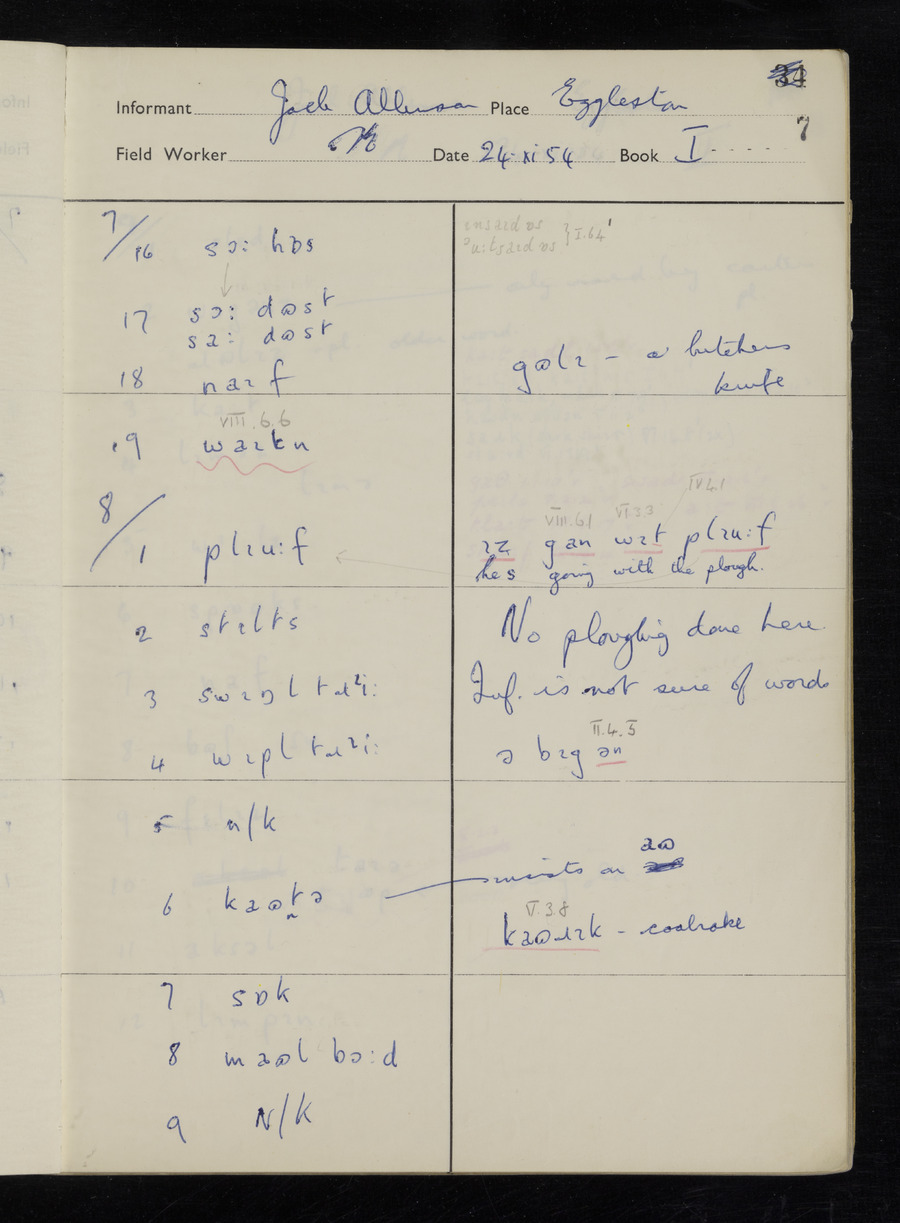 34
Informant Jack Allinson Place Eggleston
7
Field Worker Date 24·xi 54 Book I
7/16 sɔ: hɒs
ɪnsaɪd ɒs } I.64
aːtsaɪd ɒs
17 sɔ: dəst
sa: dəst
gəlɪ – a butchers
knife
18 naɪf
VIII.6.6
19 waɪkn
IV.4.1
VIII.6.1 VI.3.3
8/1 plɪu:f
ɪz gan wɪt plɪu:f
he's going with the plough.
2 stɪlts
No ploughing done here
3 swɪŋltɹi:
Inf. is not sure of words
II.4.5
4 wɪpltɹi:
ə bɪg ən
5 n/k
aə
insists on
6 kaətə
V.3.8
kaəɹɪk – coalrake
7 sɒk
8 maəl bɔ:d
9 N/K